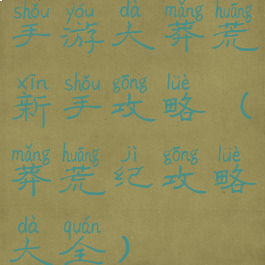 shǒu yóu dà mǎng huāng
手游大莽荒
xīn shǒu gōng lüè
新手攻略（
mǎng huāng jì gōng lüè
莽荒纪攻略
dà quán
大全）